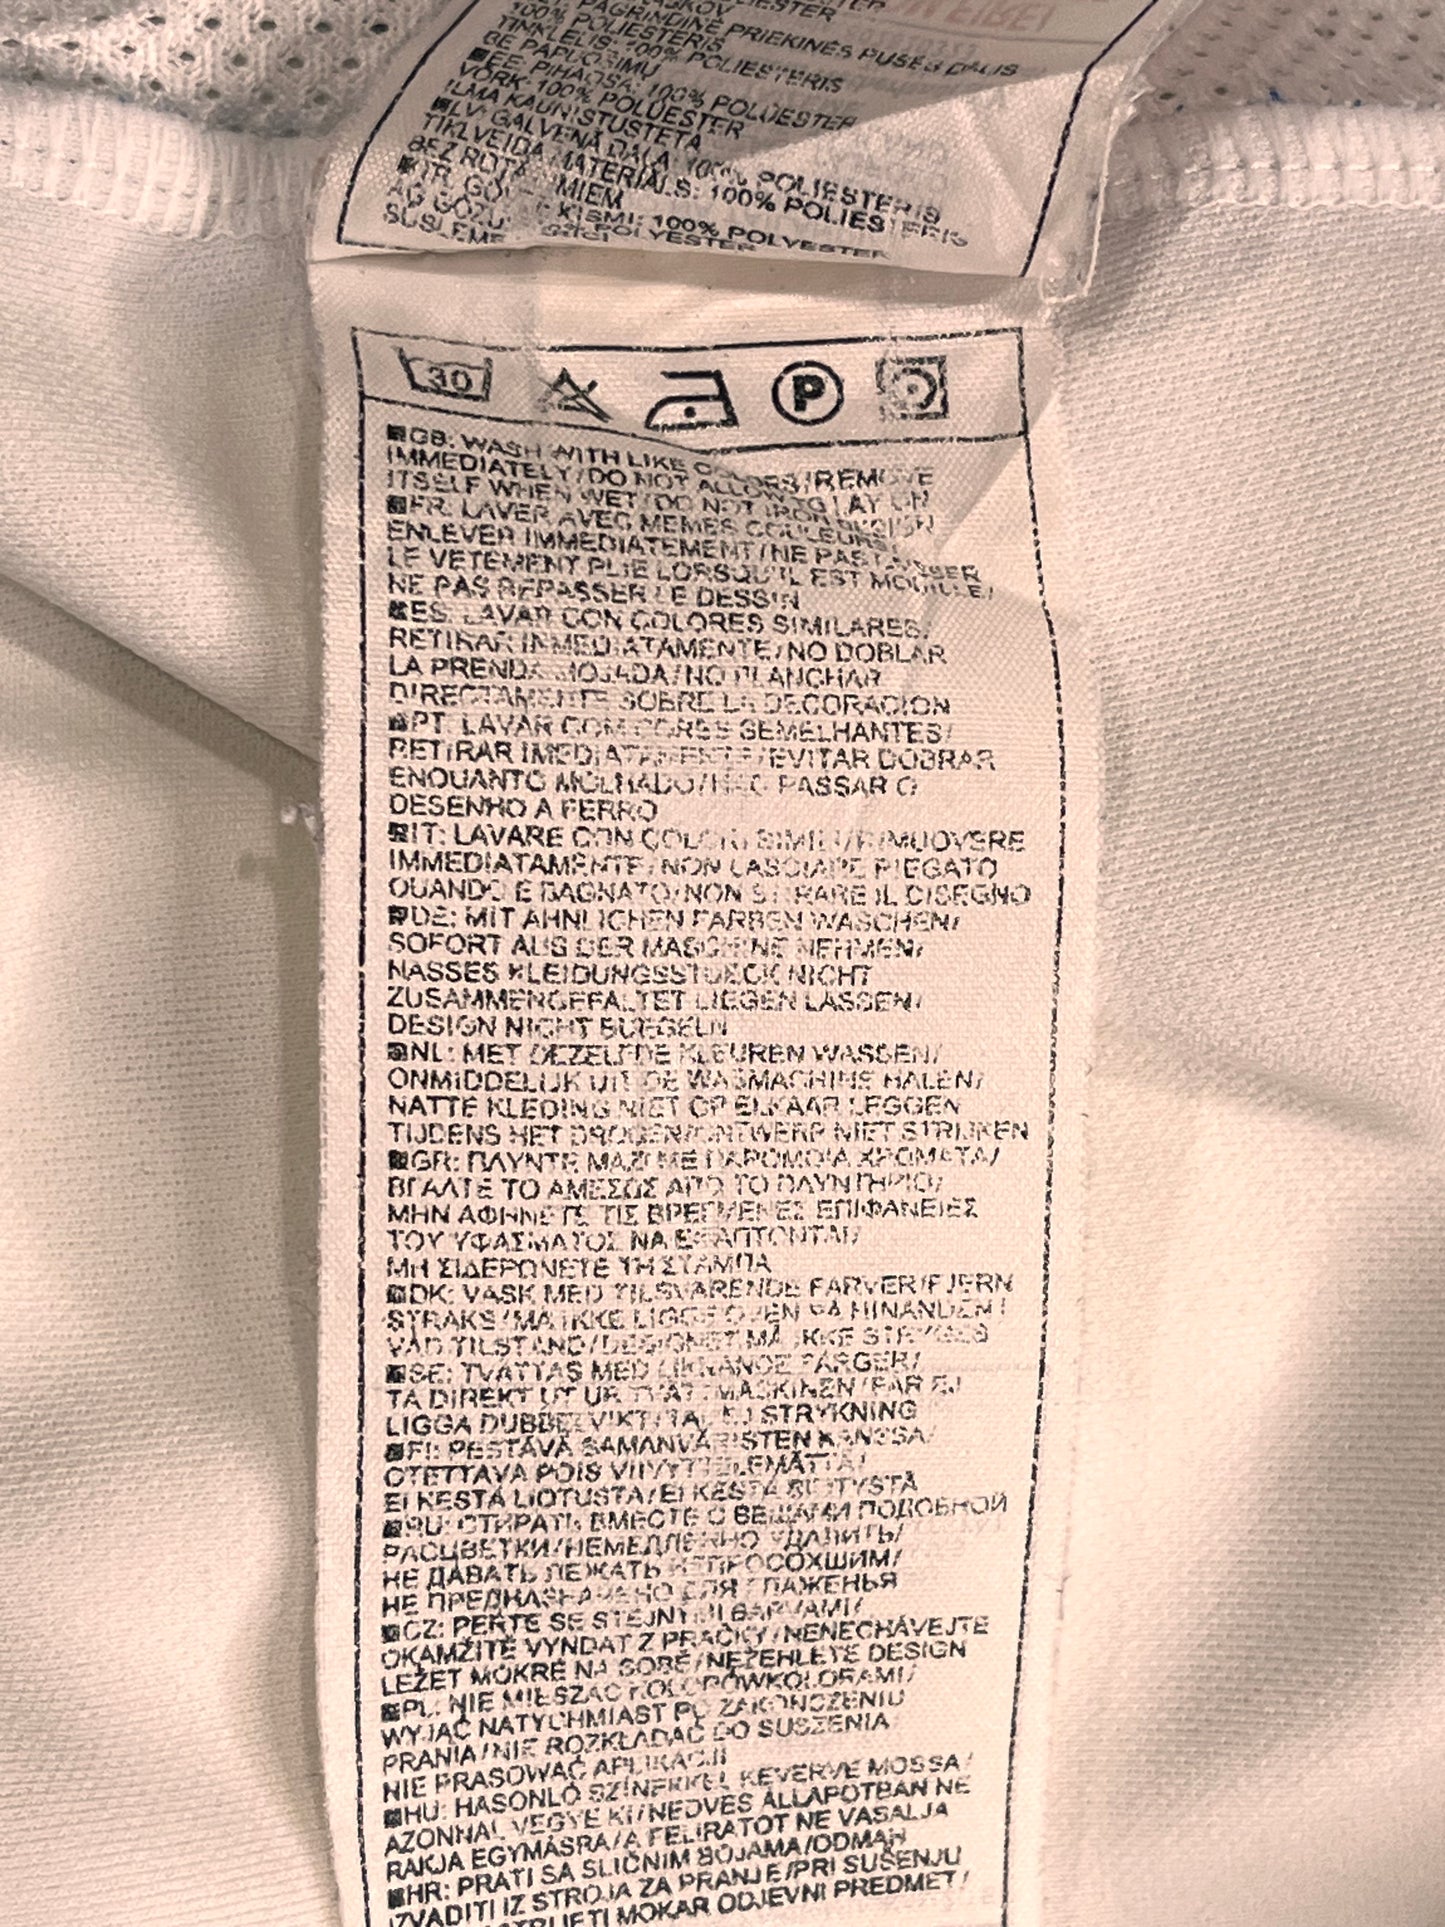 PAGRINDINĖ PRIEKINĖS PUSĖS DALIS
100% POLIESTERIS
TINKLELIS: 100% POLIESTERIS
BE PAPUOŠIMŲ
EE: PIHAOSA: 100% POLÜESTER
VÕRK: 100% POLÜESTER
ILMA KAUNISTUSTETA
LV: GALVENĀ DAĻA: 100% POLIESTERIS
TĪKLVEIDA MATERIĀLS: 100% POLIESTERIS
BEZ
TR: KISMI: 100% POLYESTER
POLYESTER
SÜSLEME
30
P
GB: WASH WITH LIKE COLORS/REMOVE
IMMEDIATELY/DO NOT ALLOW TO LAY ON
ITSELF WHEN WET/DO NOT IRON DESIGN
FR: LAVER AVEC MEMES COULEURS/
ENLEVER IMMEDIATEMENT/NE PAS LAISSER
LE VETEMENT PLIE LORSQU'IL EST MOUILLE/
NE PAS REPASSER LE DESSIN
ES: LAVAR CON COLORES SIMILARES/
RETIRAR INMEDIATAMENTE/NO DOBLAR
LA PRENDA MOJADA/NO PLANCHAR
DIRECTAMENTE SOBRE LA DECORACION
PT: LAVAR COM CORES SEMELHANTES/
RETIRAR IMEDIATAMENTE/EVITAR DOBRAR
ENQUANTO MOLHADO/NAO PASSAR O
DESENHO A FERRO
IT: LAVARE CON COLORI SIMILI/RIMUOVERE
IMMEDIATAMENTE/NON LASCIARE PIEGATO
QUANDO E BAGNATO/NON STIRARE IL DISEGNO
DE: MIT AHNLICHEN FARBEN WASCHEN/
SOFORT AUS DER MASCHINE NEHMEN/
NASSES KLEIDUNGSSTUECK NICHT
ZUSAMMENGEFALTET LIEGEN LASSEN/
DESIGN NICHT BUEGELN
NL: MET DEZELFDE KLEUREN WASSEN/
ONMIDDELIJK UIT DE WASMACHINE HALEN/
NATTE KLEDING NIET OP ELKAAR LEGGEN
TIJDENS HET DROGEN/ONTWERP NIET STRIJKEN
GR: ΠΛΥΝΤΕ ΜΑΖΙ ΜΕ ΠΑΡΟΜΟΙΑ ΧΡΩΜΑΤΑ/
ΒΓΑΛΤΕ ΤΟ ΑΜΕΣΩΣ ΑΠΟ ΤΟ ΠΛΥΝΤΗΡΙΟ/
ΜΗΝ ΑΦΗΝΕΤΕ ΤΙΣ ΒΡΕΓΜΕΝΕΣ ΕΠΙΦΑΝΕΙΕΣ
ΤΟΥ ΥΦΑΣΜΑΤΟΣ ΝΑ ΕΦΑΠΤΟΝΤΑΙ/
ΜΗ ΣΙΔΕΡΩΝΕΤΕ ΤΗ ΣΤΑΜΠΑ
DK: VASK MED TILSVARENDE FARVER/FJERN
STRAKS/MÅ IKKE LIGGE OVEN PÅ HINANDEN I
VÅD TILSTAND/DESIGNET MÅ IKKE STRYGES
SE: TVÄTTAS MED LIKNANDE FÄRGER/
TA DIREKT UT UR TVÄTTMASKINEN/FÅR EJ
LIGGA DUBBELVIKT/TÅL EJ STRYKNING
FI: PESTÄVÄ SAMANVÄRISTEN KANSSA/
OTETTAVA POIS VIIVYTTELEMÄTTÄ/
EI KESTÄ LIOTUSTA/EI KESTÄ SILITYSTÄ
RU: СТИРАТЬ ВМЕСТЕ С ВЕЩАМИ ПОДОБНОЙ
РАСЦВЕТКИ/НЕМЕДЛЕННО УДАЛИТЬ/
НЕ ДАВАТЬ ЛЕЖАТЬ НЕПРОСОХШИМ/
НЕ ПРЕДНАЗНАЧЕНО ДЛЯ ГЛАЖЕНЬЯ
CZ: PERTE SE STEJNÝMI BARVAMI/
OKAMŽITĚ VYNDAT Z PRAČKY/NENECHÁVEJTE
LEŽET MOKRÉ NA SOBĚ/NEŽEHLETE DESIGN
PL: NIE MIESZAĆ KOLORÓWKOLORAMI/
WYJĄĆ NATYCHMIAST PO ZAKOŃCZENIU
PRANIA/NIE ROZKŁADAĆ DO SUSZENIA
NIE PRASOWAĆ APLIKACJI
HU: HASONLÓ SZÍNEKKEL KEVERVE MOSSA/
AZONNAL VEGYE KI/NEDVES ÁLLAPOTBAN NE
RAKJA EGYMÁSRA/A FELIRATOT NE VASALJA
HR: PRATI SA SLIČNIM BOJAMA/ODMAH
IZVADITI IZ STROJA ZA PRANJE/PRI SUŠENJU
MOKAR ODJEVNI PREDMET/